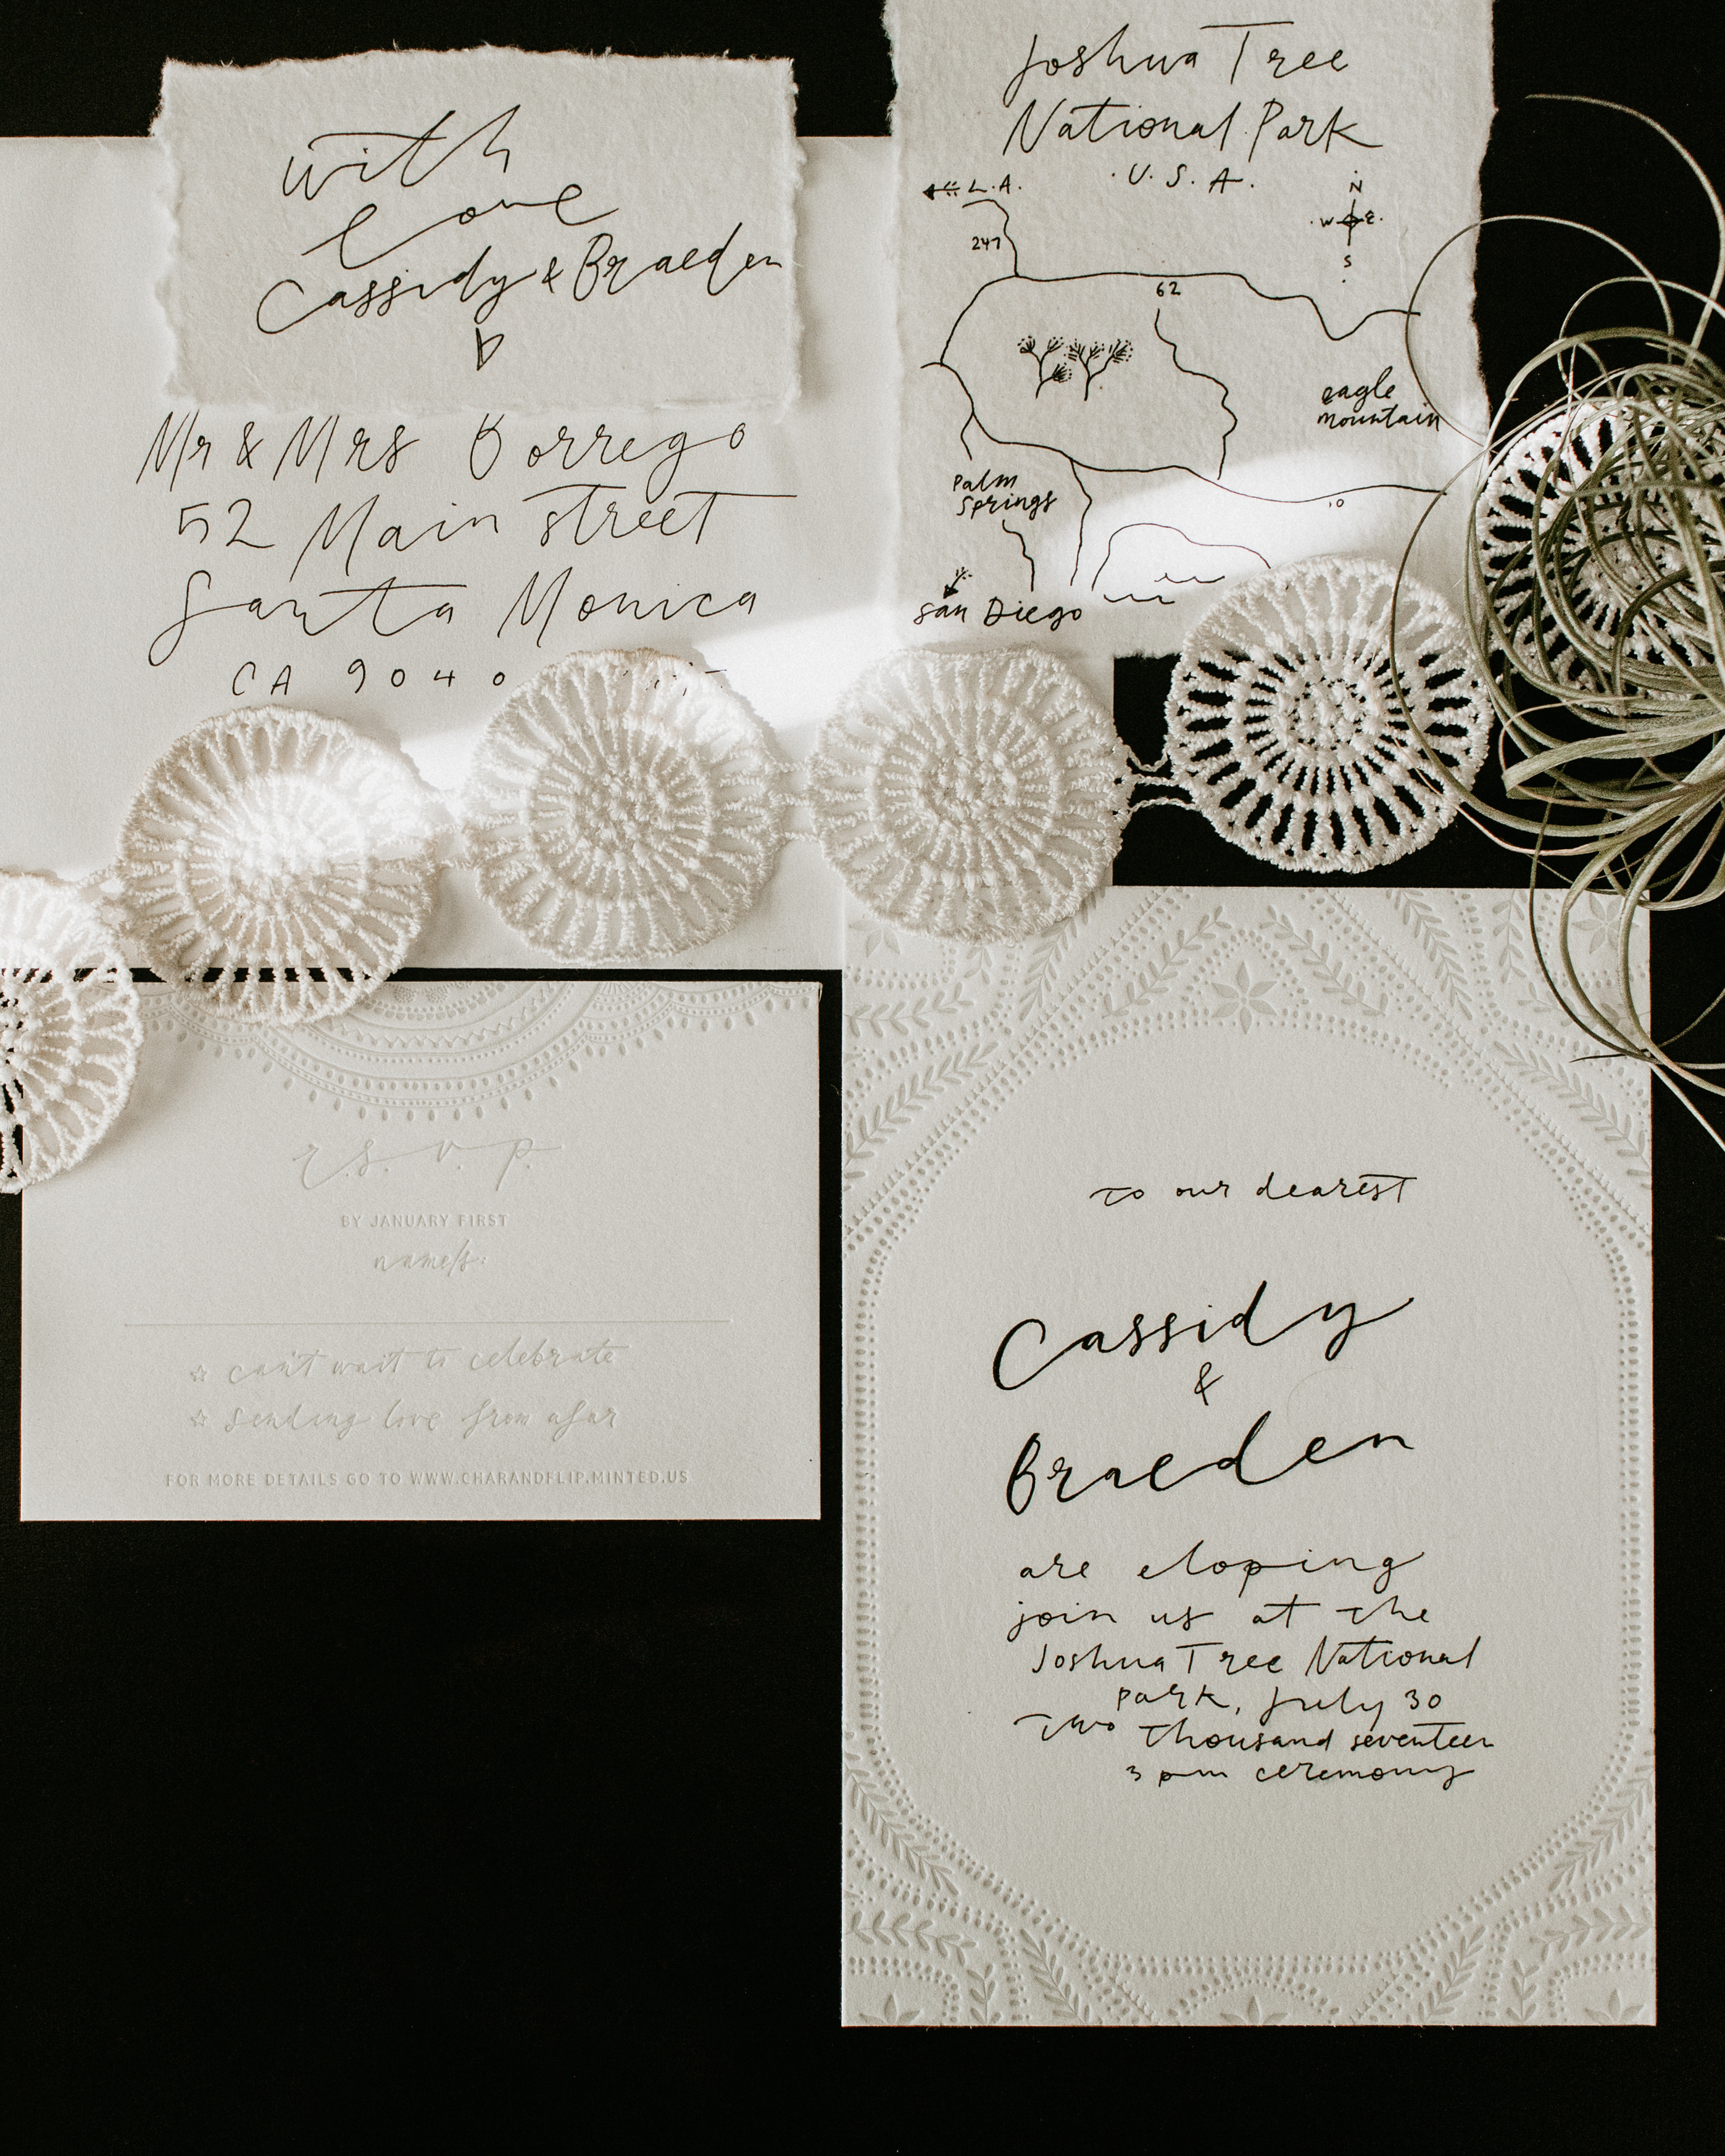 with
love
Cassidy & Braeden
Mr & Mrs Borrego
52 Main street
Santa Monica
CA 9040
Joshua Tree
National Park
· U. S. A.
L.A.
N
W E
S
247
62
eagle
mountain
Palm
Springs
10
San Diego
r.s.v.p.
BY JANUARY FIRST
name/s:
can't wait to celebrate
sending love from afar
FOR MORE DETAILS GO TO WWW.CHARANDFLIP.MINTED.US
to our dearest
Cassidy
&
Braeden
are eloping
join us at the
Joshua Tree National
Park, July 30
Two thousand seventeen
3 pm ceremony